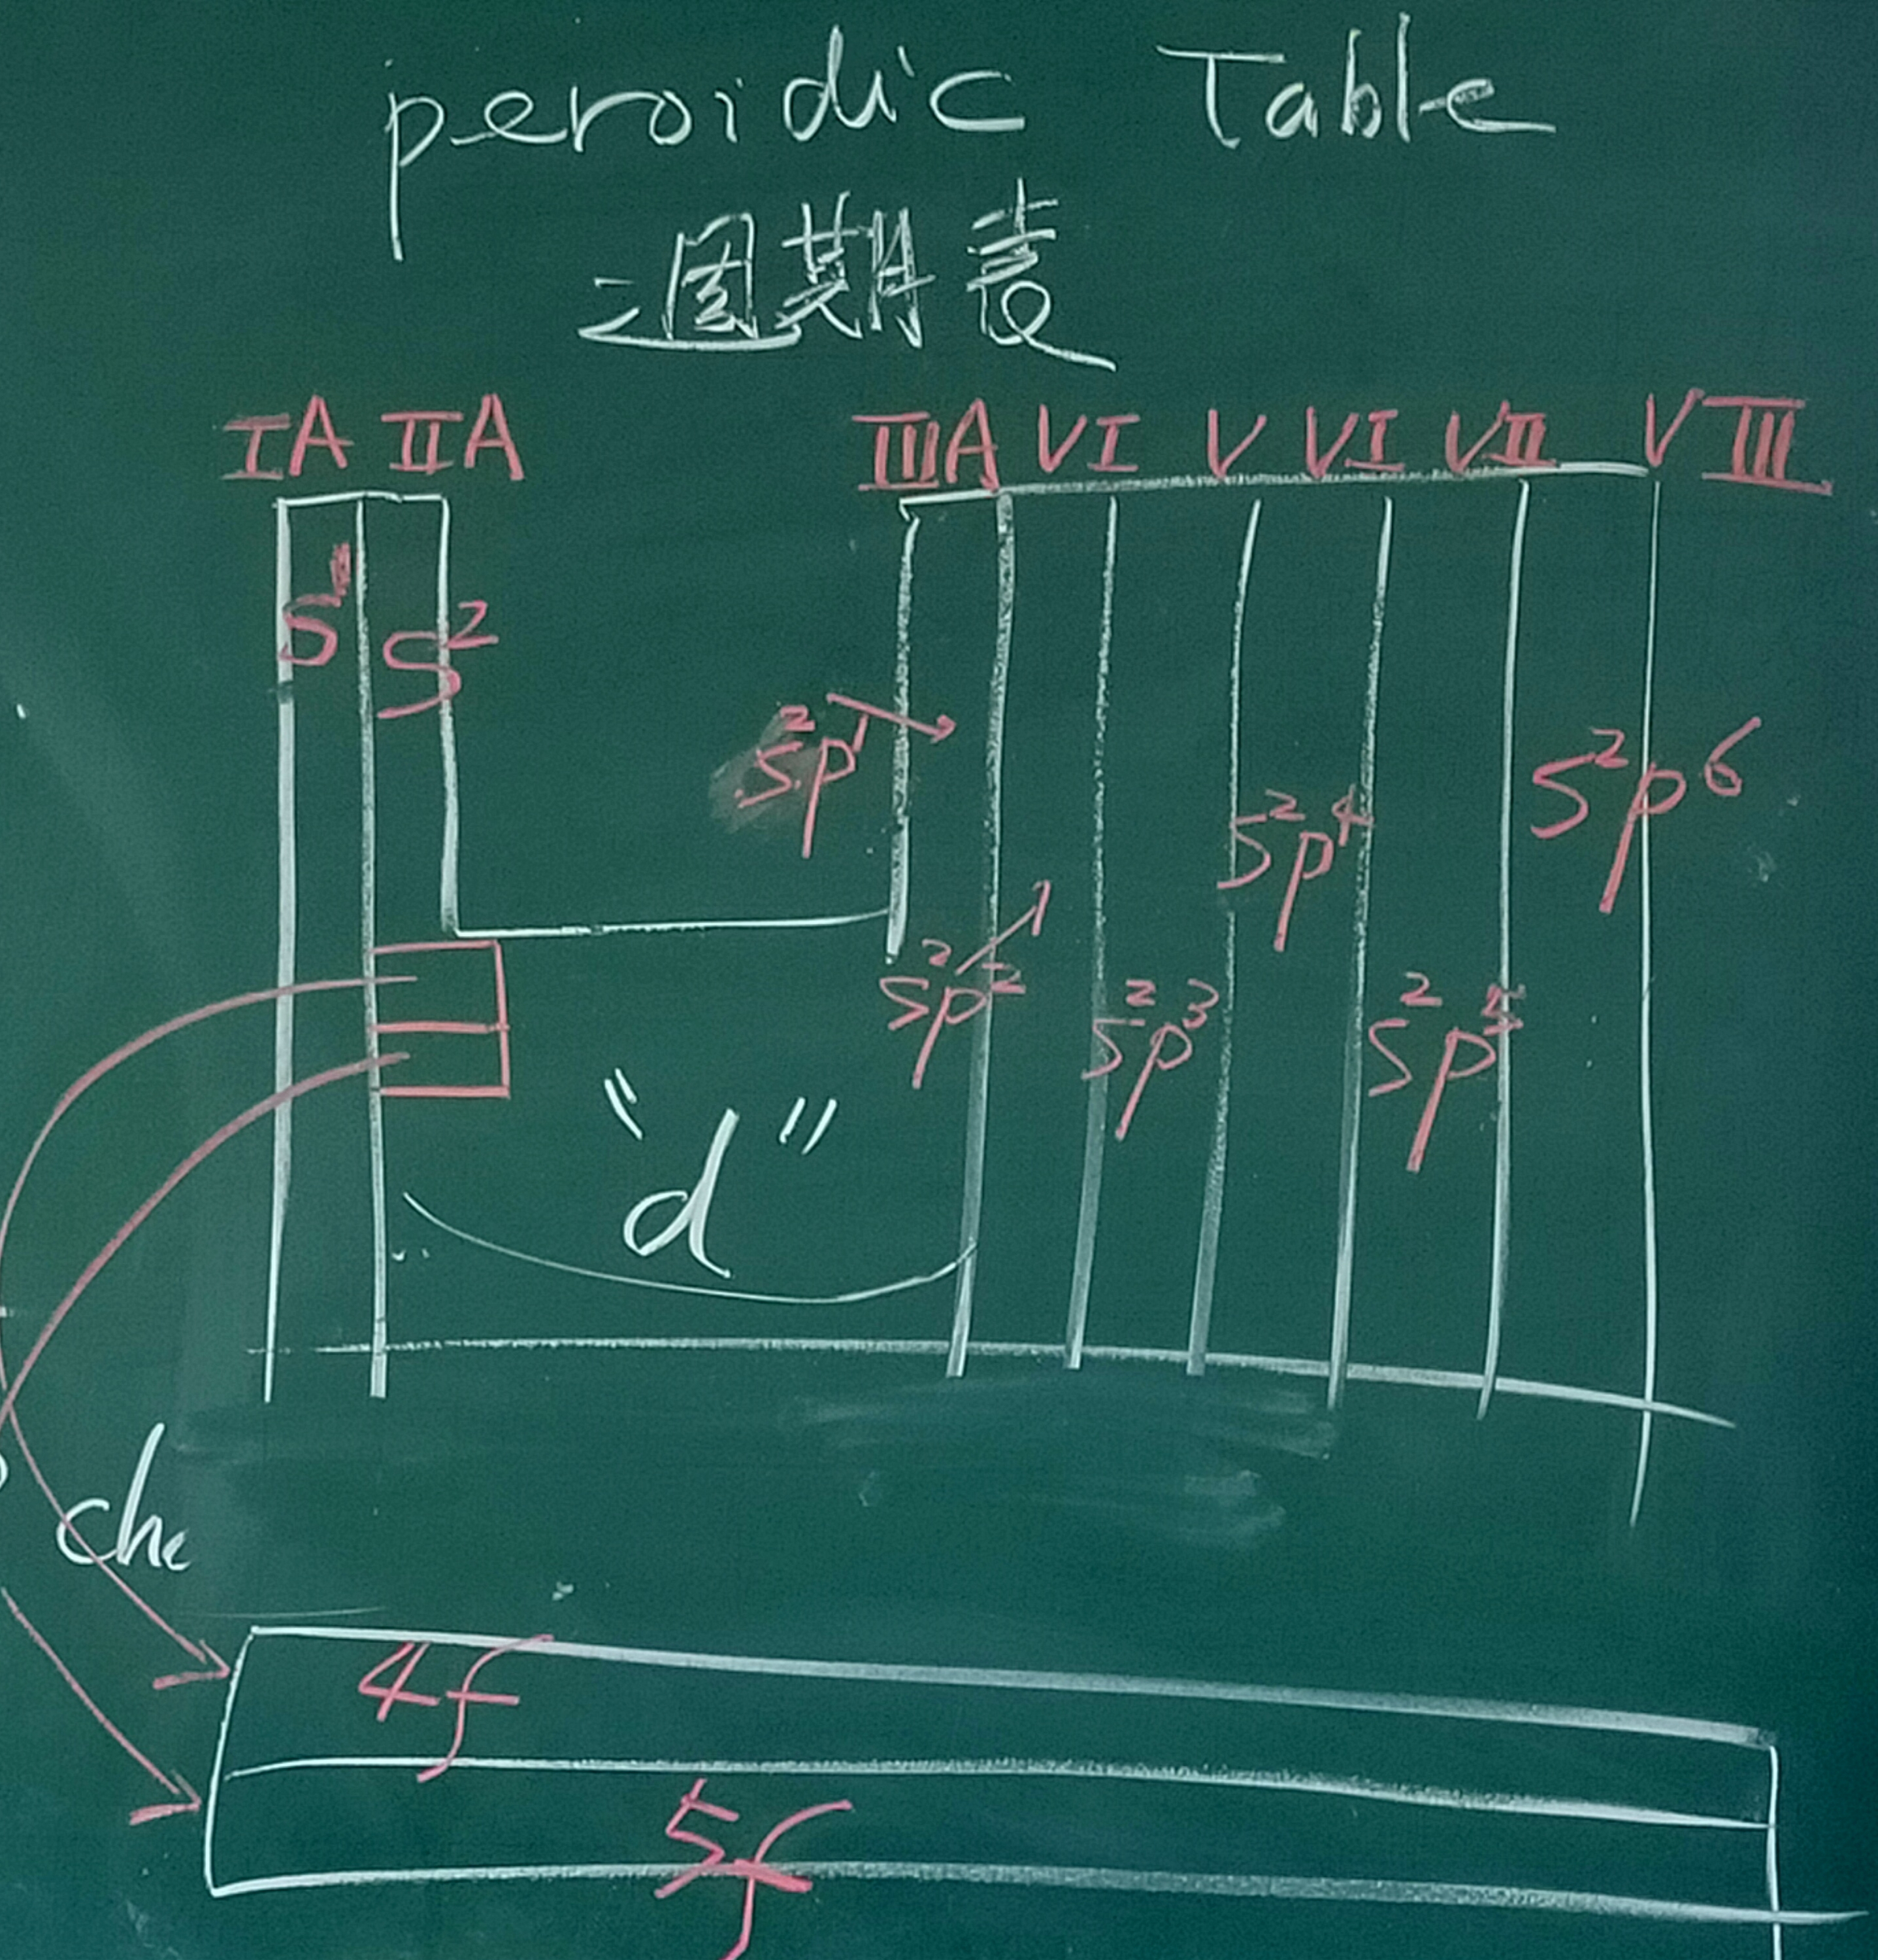 peroidic Table
週期表
IA IIA IIIA VI V VI VII VIII
s¹ s²
s²p¹ s²p⁴ s²p⁶
s²p² s²p³ s²p⁵
"d"
che
4f
5f